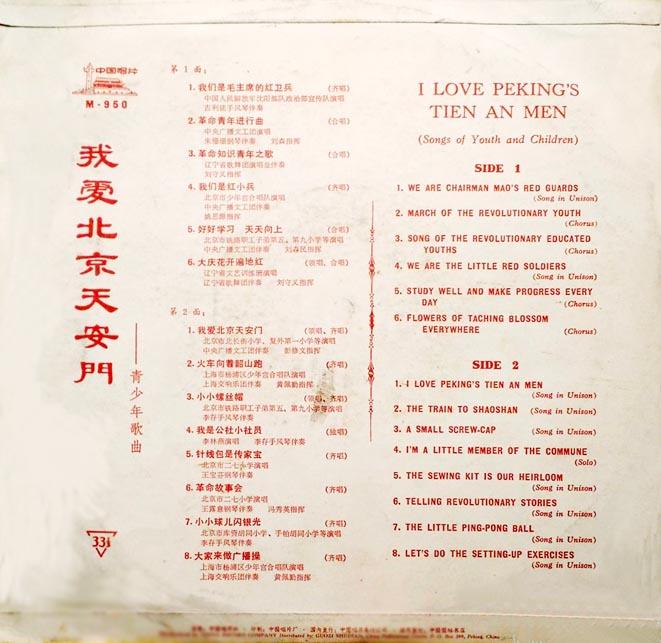 中国唱片
M-950
我爱北京天安門
——青少年歌曲
33⅓
第1面:
1. 我们是毛主席的红卫兵 (齐唱)
中国人民解放军沈阳部队政治部宣传队演唱
吉利徒手风琴伴奏
2. 革命青年进行曲 (合唱)
中央广播文工团演唱
朱雅珊钢琴伴奏 刘森指挥
3. 革命知识青年之歌 (合唱)
辽宁省歌舞团演唱並伴奏
刘守义指挥
4. 我们是红小兵 (齐唱)
北京市少年宫合唱队演唱
中央广播文工团伴奏
姚思源指挥
5. 好好学习 天天向上 (合唱)
北京市铁路职工子弟第五、第九小学等演唱
中央广播文工团伴奏 刘森民指挥
6. 大庆花开遍地红 (领唱、合唱)
辽宁省文艺训练班演唱
辽宁省歌舞团伴奏 刘守义指挥
第2面:
1. 我爱北京天安门 (领唱、齐唱)
北京市北长街小学、复外第一小学等演唱
中央广播文工团伴奏 彭修文指挥
2. 火车向着韶山跑 (齐唱)
上海市杨浦区少年宫合唱队演唱
上海交响乐团伴奏 黄佩勤指挥
3. 小小螺丝帽 (领唱、齐唱)
北京市铁路职工子弟第五、第九小学等演唱
李存手风琴伴奏
4. 我是公社小社员 (独唱)
李林燕演唱 李存手风琴伴奏
5. 针线包是传家宝 (齐唱)
北京市二七小学演唱
王宝芬钢琴伴奏
6. 革命故事会 (齐唱)
北京市二七小学演唱
王露意钢琴伴奏 冯秀英指挥
7. 小小球儿闪银光 (齐唱)
北京市库资胡同小学、手帕胡同小学等演唱
李存手风琴伴奏
8. 大家来做广播操 (齐唱)
上海市杨浦区少年宫合唱队演唱
上海交响乐团伴奏 黄佩勤指挥
I LOVE PEKING'S
TIEN AN MEN
(Songs of Youth and Children)
SIDE 1
1. WE ARE CHAIRMAN MAO'S RED GUARDS
(Song in Unison)
2. MARCH OF THE REVOLUTIONARY YOUTH
(Chorus)
3. SONG OF THE REVOLUTIONARY EDUCATED
YOUTHS (Chorus)
4. WE ARE THE LITTLE RED SOLDIERS
(Song in Unison)
5. STUDY WELL AND MAKE PROGRESS EVERY
DAY (Chorus)
6. FLOWERS OF TACHING BLOSSOM
EVERYWHERE (Chorus)
SIDE 2
1. I LOVE PEKING'S TIEN AN MEN
(Song in Unison)
2. THE TRAIN TO SHAOSHAN (Song in Unison)
3. A SMALL SCREW-CAP (Song in Unison)
4. I'M A LITTLE MEMBER OF THE COMMUNE
(Solo)
5. THE SEWING KIT IS OUR HEIRLOOM
(Song in Unison)
6. TELLING REVOLUTIONARY STORIES
(Song in Unison)
7. THE LITTLE PING-PONG BALL
(Song in Unison)
8. LET'S DO THE SETTING-UP EXERCISES
(Song in Unison)